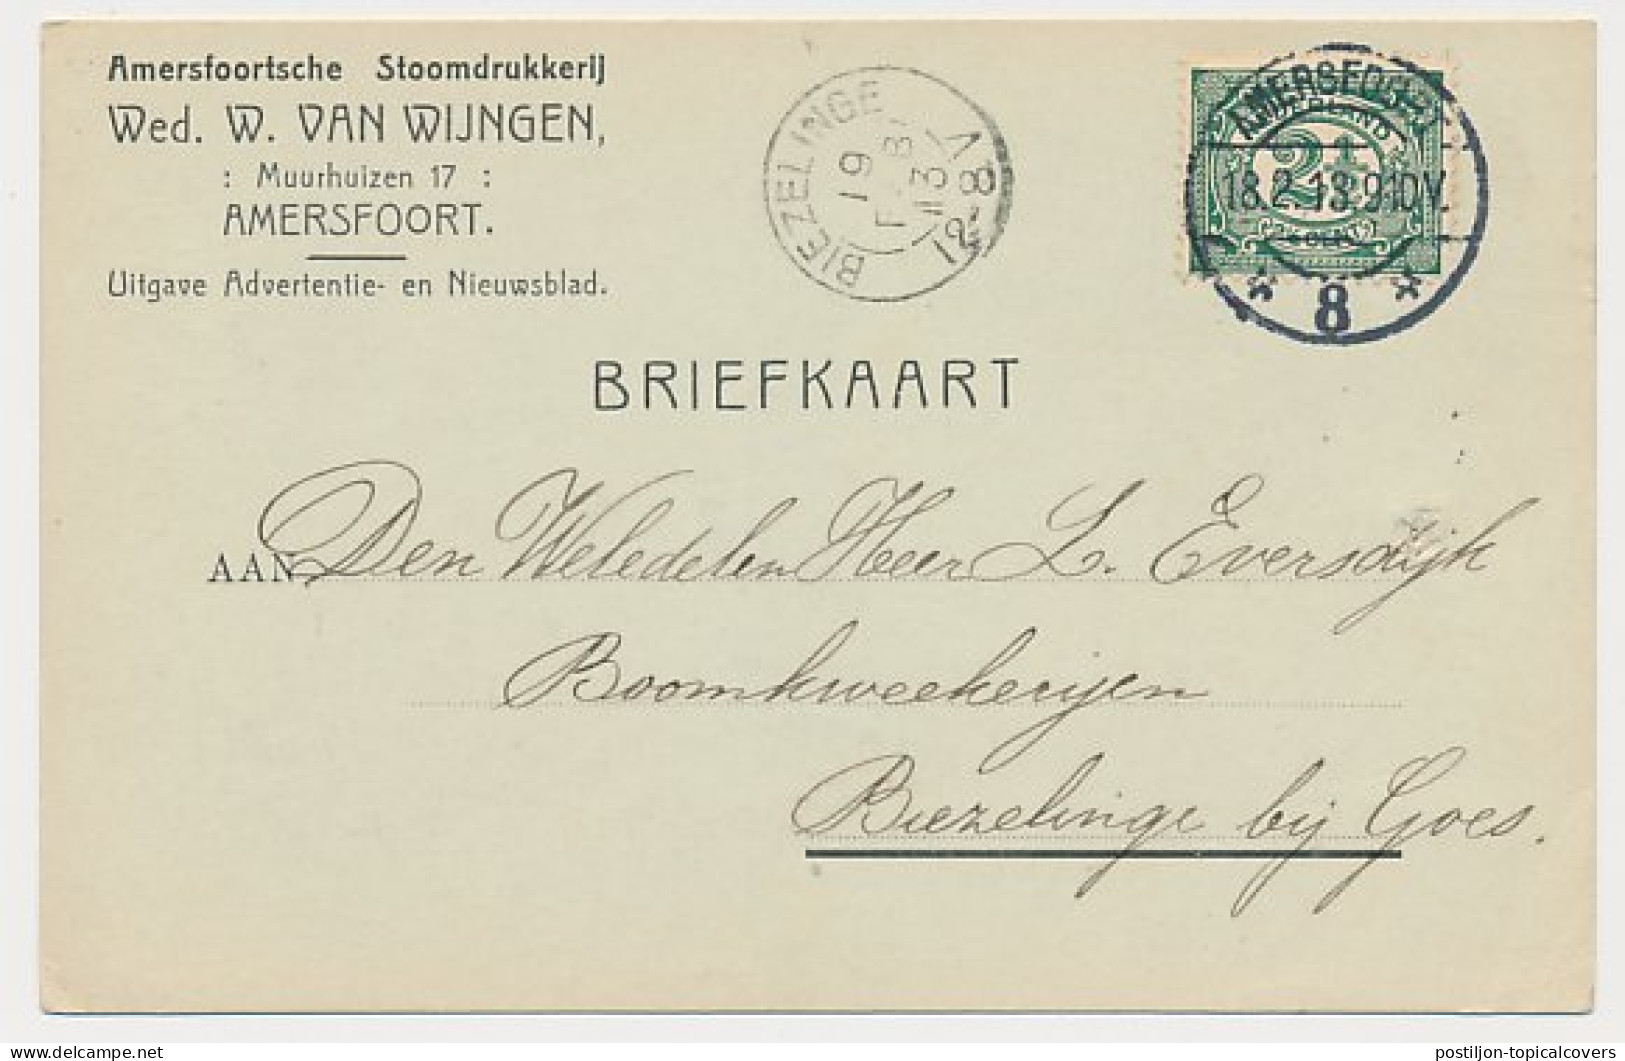 Amersfoortsche Stoomdrukkerij
Wed. W. VAN WIJNGEN,
: Muurhuizen 17 :
AMERSFOORT.
Uitgave Advertentie- en Nieuwsblad.
BIEZELINGE
19
13
12-8 V
AMERSFOORT
2½
18.2.13.9-10V.
8
BRIEFKAART
AAN Den Weledelen Heer L. Eversdijk
Boomkweekerijen
Biezelinge bij Goes.
postiljon-topicalcovers